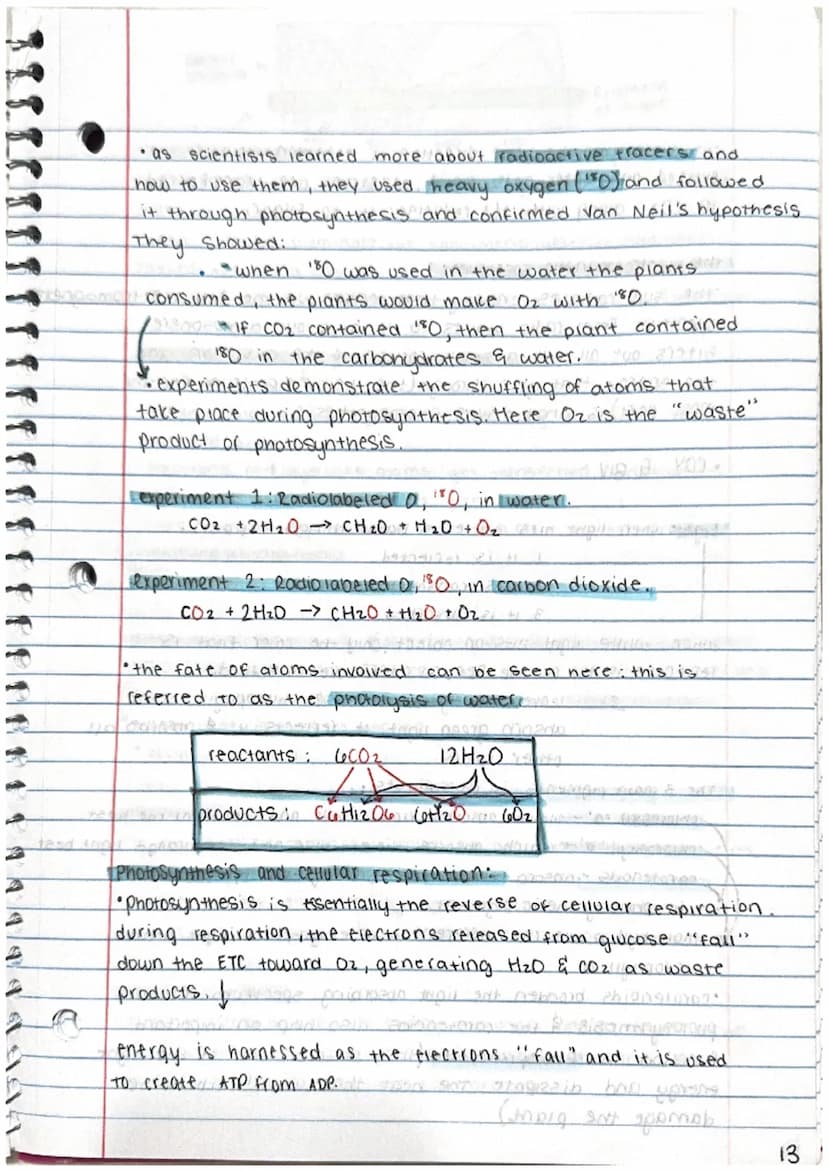 • as scientists learned more about radioactive tracers and
how to use them, they used heavy oxygen (¹⁸O) and followed
it through photosynthesis and confirmed Van Neil's hypothesis
They showed:
• when ¹⁸O was used in the water the plants
consumed, the plants would make O₂ with ¹⁸O.
• If CO₂ contained ¹⁸O, then the plant contained
¹⁸O in the carbohydrates & water.
• experiments demonstrate the shuffling of atoms that
take place during photosynthesis. Here O₂ is the "waste"
product of photosynthesis.
experiment 1: Radiolabeled O, ¹⁸O, in water.
CO₂ + 2H₂O → CH₂O + H₂O + O₂
experiment 2: Radiolabeled O, ¹⁸O, in carbon dioxide.
CO₂ + 2H₂O → CH₂O + H₂O + O₂
• the fate of atoms involved can be seen here: this is
referred to as the photolysis of water.
reactants: 6CO₂ 12H₂O
products: C₆H₁₂O₆ 6H₂O 6O₂
Photosynthesis and cellular respiration:
• Photosynthesis is essentially the reverse of cellular respiration.
during respiration, the electrons released from glucose "fall"
down the ETC toward O₂, generating H₂O & CO₂ as waste
products. ↓
energy is harnessed as the electrons "fall" and it is used
to create ATP from ADP.
13